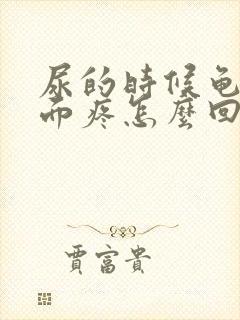 尿的時候龟
而疼怎麼回
賈富貴